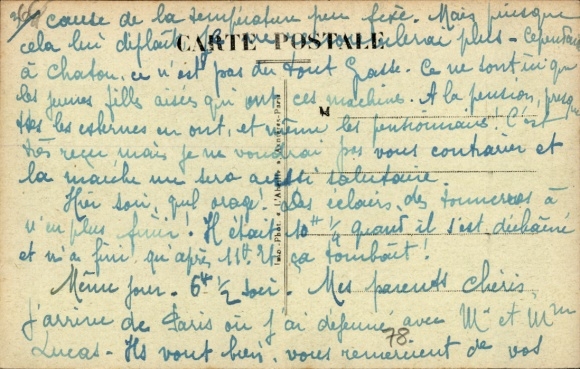 cause de la température peu fixé. Mais puisque
cela lui déplaît plus - Cependant
CARTE POSTALE
à Chatou, ce n'est pas du tout Gosse. Ce ne sont ici que
les jeunes filles aisés qui ont ces machines. A la pension, presque
ttes les externes en ont, et même les pensionnaires! C'est
très reçu mais je ne voudrai pas vous contrarier et
la marche me sera aussi salutaire.
Hier soir, quel orage! des éclairs, des tonnerres à
n'en plus finir! Il était 10H ¼ quand il s'est déchaîné
et n'a fini qu'après 11H. Et ça tombait!
Même jour. 6H ½ soir. Mes parents chéris
J'arrive de Paris où j'ai déjeuné avec Mr et Mme
78.
Lucas - Ils vont bien, vous remercient de vos